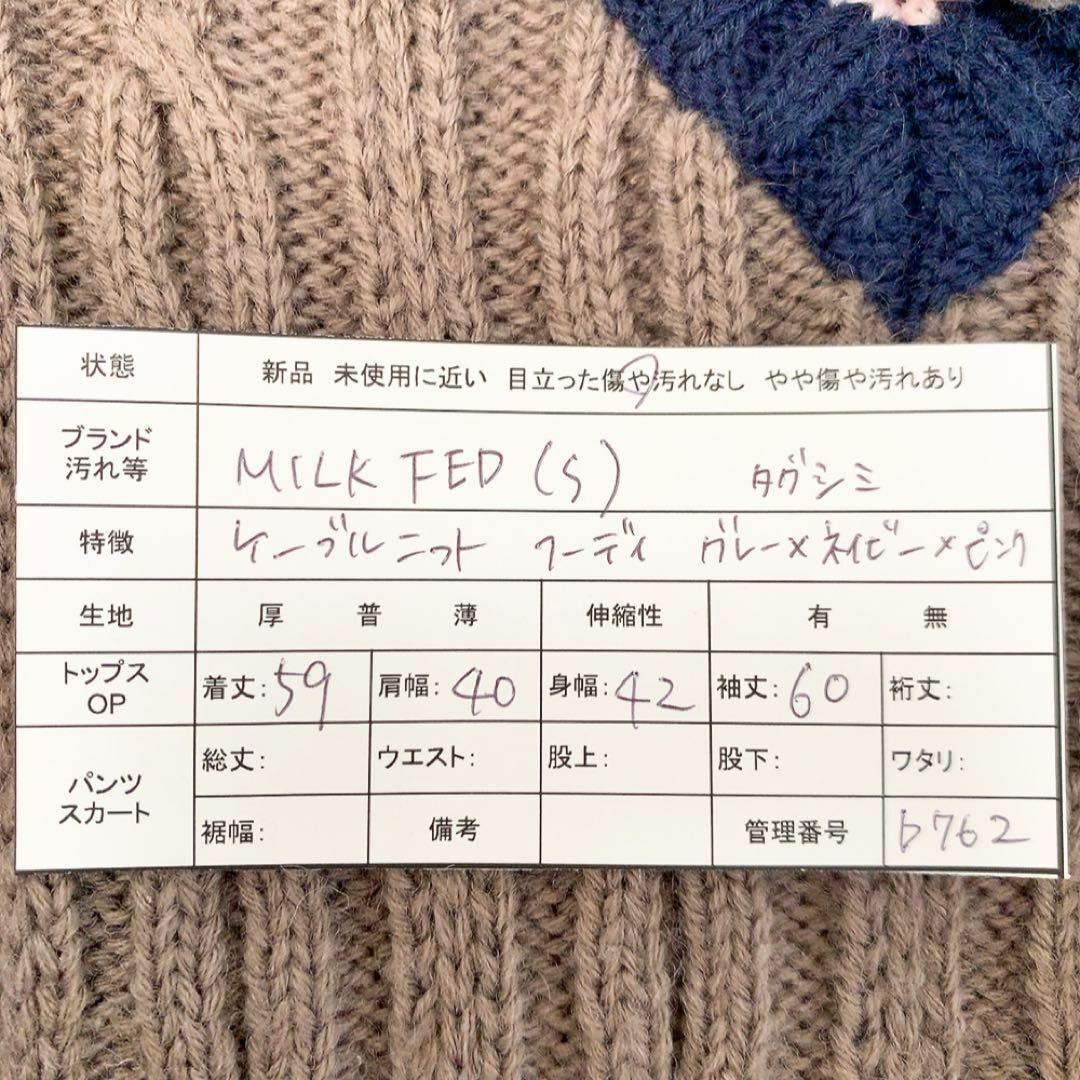 状態 新品 未使用に近い 目立った傷や汚れなし やや傷や汚れあり
ブランド
汚れ等 MILK FED (S) タグシミ
特徴 ケーブルニット フーディ グレー×ネイビー×ピンク
生地 厚 普 薄 伸縮性 有 無
トップス
OP 着丈:59 肩幅:40 身幅:42 袖丈:60 裄丈:
パンツ
スカート 総丈: ウエスト: 股上: 股下: ワタリ:
裾幅: 備考 管理番号 b762